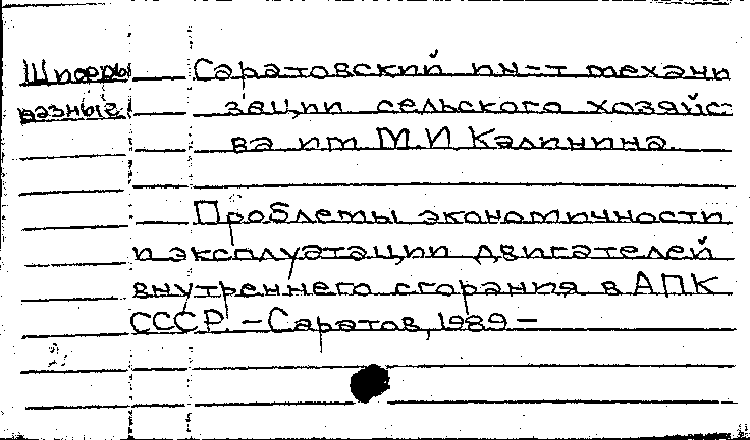 Шифры Саратовский ин-т механи
разные зации сельского хозяйст
ва им М.И Калинина
Проблемы экономичности
и эксплуатации двигателей
внутреннего сгорания в АПК
СССР. – Саратов, 1989 –